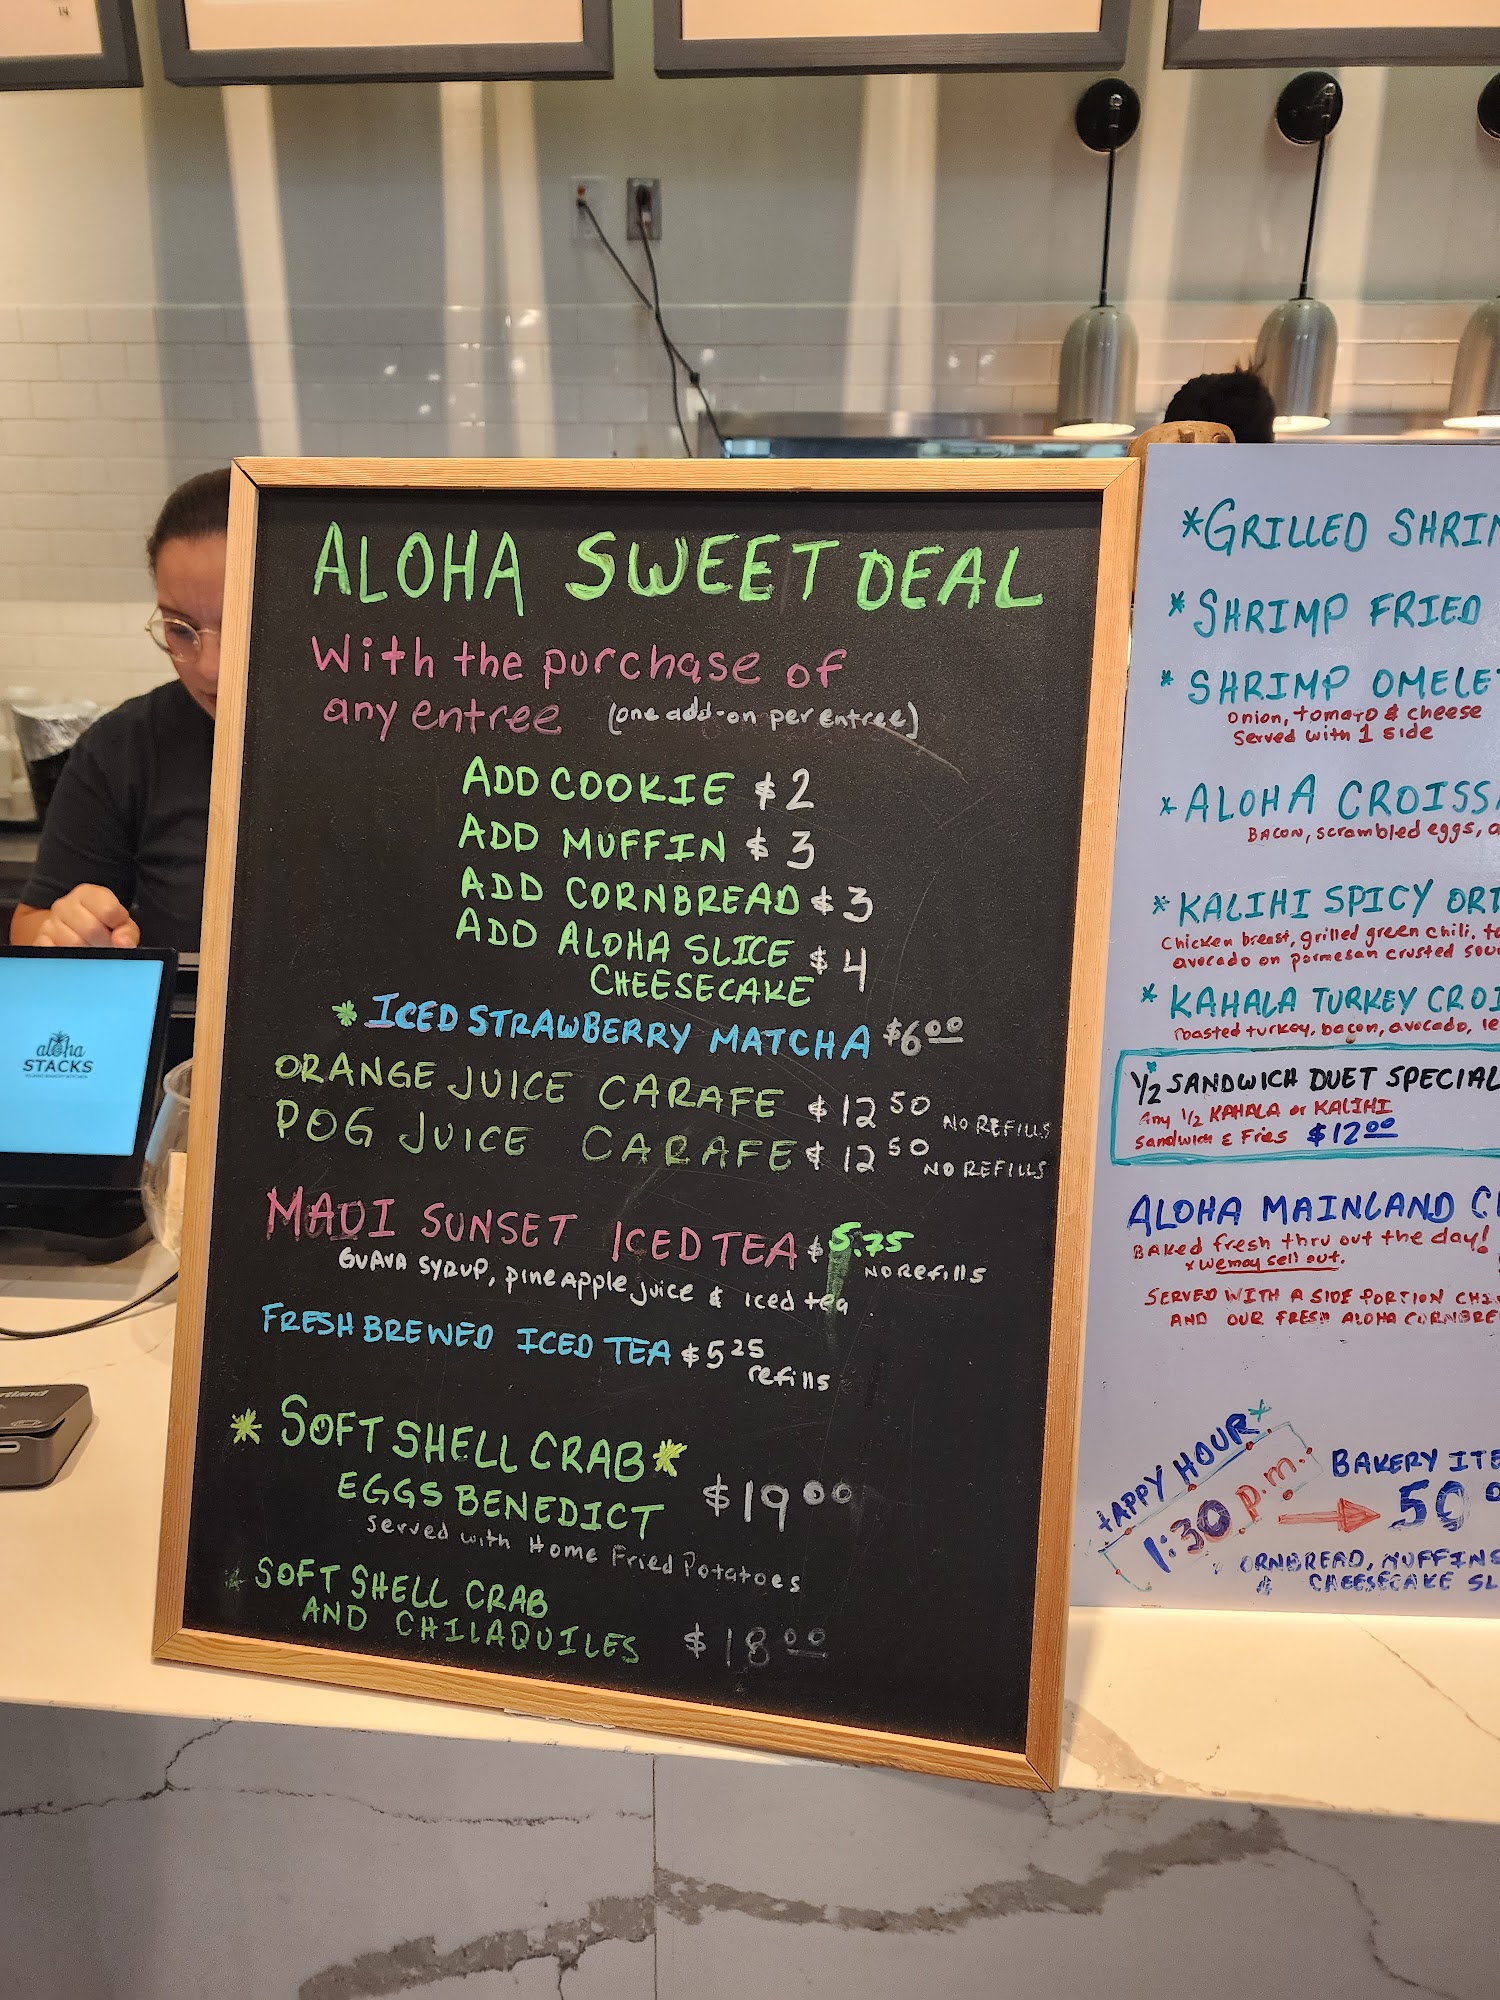 ALOHA SWEET DEAL
With the purchase of
any entree (one add-on per entree)
ADD COOKIE $2
ADD MUFFIN $3
ADD CORNBREAD $3
ADD ALOHA SLICE
CHEESECAKE $4
* ICED STRAWBERRY MATCHA $6.00
ORANGE JUICE CARAFE $12 50 NO REFILLS
POG JUICE CARAFE $12 50 NO REFILLS
MAUI SUNSET ICED TEA $5.75
NO Refills
GUAVA SYRUP, pineApple juice & iced tea
FRESH BREWED ICED TEA $5 25
refills
* SOFT SHELL CRAB *
EGGS BENEDICT $19 00
Served with Home Fried Potatoes
* SOFT SHELL CRAB
AND CHILAQUILES $18 00
aloha
STACKS
*GRILLED SHRIM
*SHRIMP FRIED
* SHRIMP OMELE
onion, tomato & cheese
Served with 1 side
*ALOHA CROISS
BACON, scrambled eggs, a
*KALIHI SPICY
Chicken breast, grilled green chili,
avocado on parmesan crusted sou
* KAHALA TURKEY CROI
roasted turkey, bacon, avocado, le
1/2 SANDWICH DUET SPECIAL
Any 1/2 KAHALA or KALIHI
Sandwich & Fries $12 00
ALOHA MAINLAND C
BAKED fresh thru out the day!
* We may sell out.
SERVED WITH A SIDE PORTION
AND OUR FRESH ALOHA CORNBRE
HAPPY HOUR*
1:30 p.m. → BAKERY ITE
50
CORNBREAD, MUFFINS
& CHEESECAKE SL